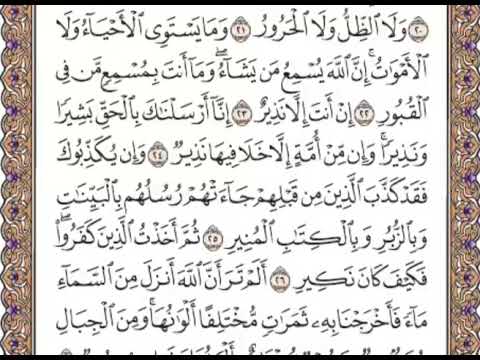 ٢٠ وَلَا ٱلظِّلُّ وَلَا ٱلْحَرُورُ ٢١ وَمَا يَسْتَوِى ٱلْأَحْيَآءُ وَلَا
ٱلْأَمْوَٰتُ ۚ إِنَّ ٱللَّهَ يُسْمِعُ مَن يَشَآءُ ۖ وَمَآ أَنتَ بِمُسْمِعٍ مَّن فِى
ٱلْقُبُورِ ٢٢ إِنْ أَنتَ إِلَّا نَذِيرٌ ٢٣ إِنَّآ أَرْسَلْنَٰكَ بِٱلْحَقِّ بَشِيرًا
وَنَذِيرًا ۚ وَإِن مِّنْ أُمَّةٍ إِلَّا خَلَا فِيهَا نَذِيرٌ ٢٤ وَإِن يُكَذِّبُوكَ
فَقَدْ كَذَّبَ ٱلَّذِينَ مِن قَبْلِهِمْ جَآءَتْهُمْ رُسُلُهُم بِٱلْبَيِّنَٰتِ
وَبِٱلزُّبُرِ وَبِٱلْكِتَٰبِ ٱلْمُنِيرِ ٢٥ ثُمَّ أَخَذْتُ ٱلَّذِينَ كَفَرُوا۟ ۖ
فَكَيْفَ كَانَ نَكِيرِ ٢٦ أَلَمْ تَرَ أَنَّ ٱللَّهَ أَنزَلَ مِنَ ٱلسَّمَآءِ
مَآءً فَأَخْرَجْنَا بِهِۦ ثَمَرَٰتٍ مُّخْتَلِفًا أَلْوَٰنُهَا ۚ وَمِنَ ٱلْجِبَالِ